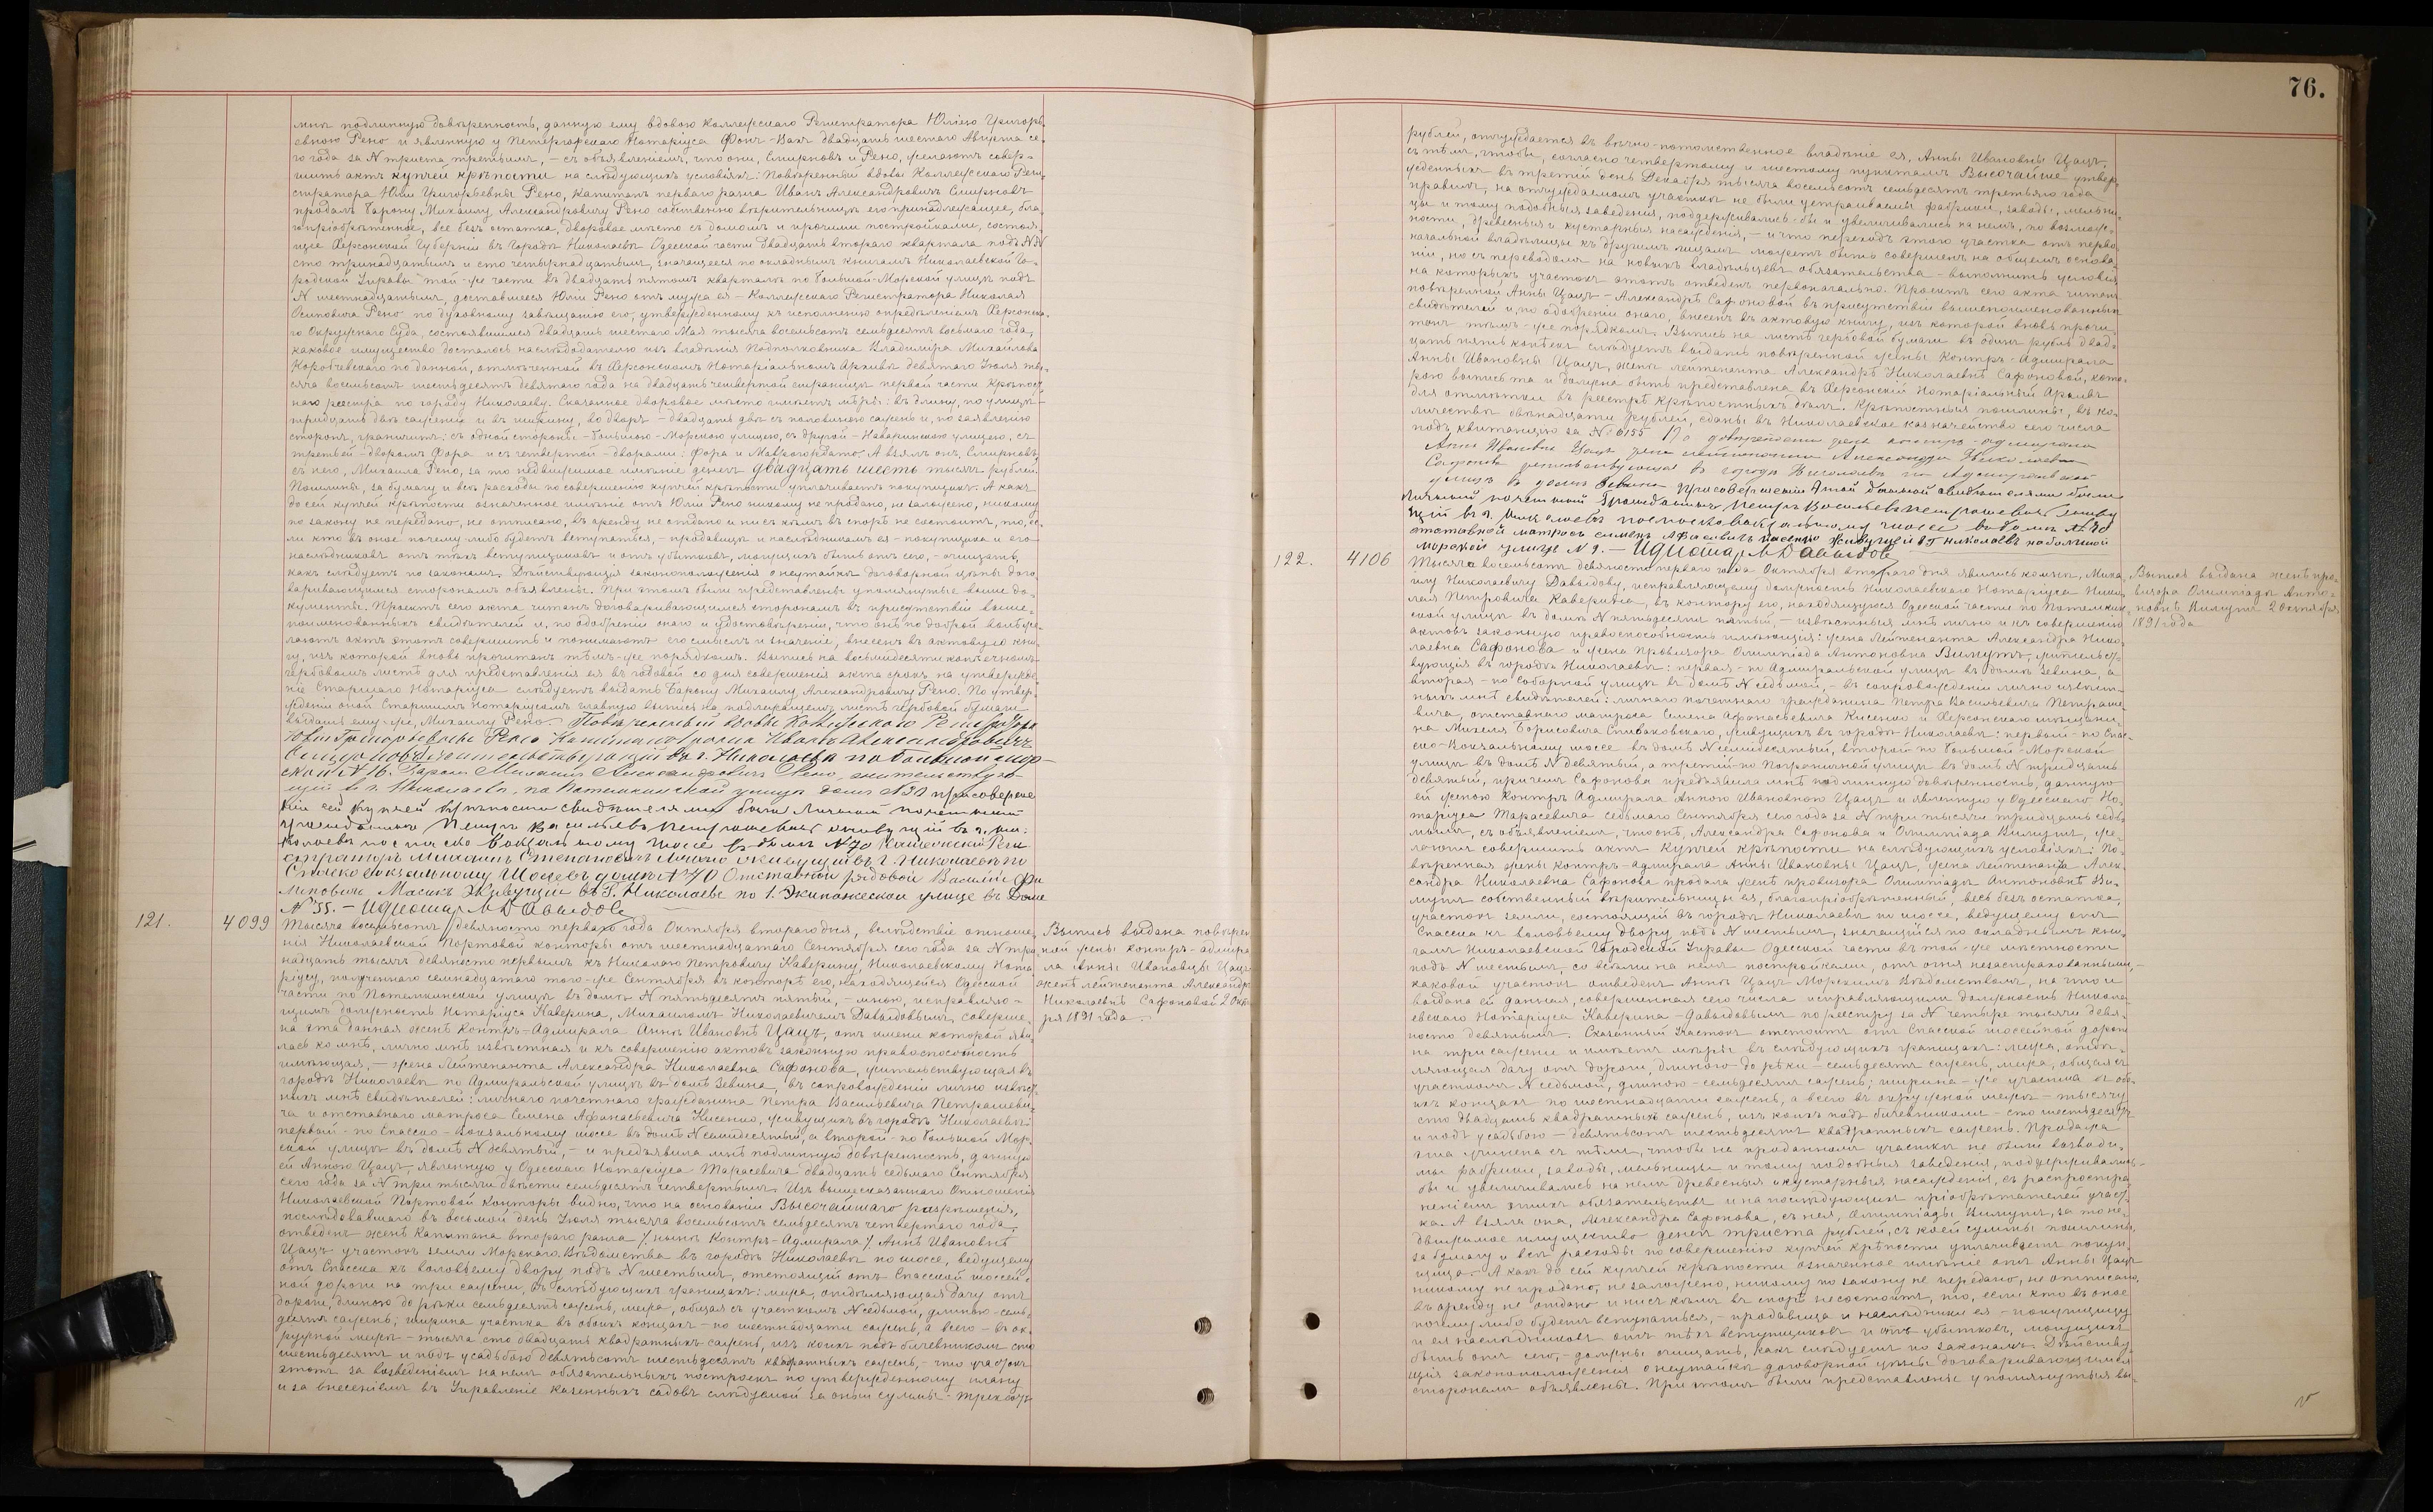 мнѣ подлинную довѣренность, данную ему вдовою Коллежскаго Регистратора Юліею Григорь-
евною Рено и явленную у Петергофскаго Нотаріуса Фонъ-Ваxъ двадцать шестаго Августа се-
го года за N триста третьимъ, – съ объявленіемъ, что они, Смирновъ и Рено, желаютъ совер-
шить актъ купчей крѣпости на слѣдующихъ условіяхъ: Повѣренный вдовы Коллежскаго Реги-
стратора Юліи Григорьевны Рено, Капитанъ перваго ранга Иванъ Александровичъ Смирновъ
продалъ Барону Михаилу Александровичу Рено собственно вѣрительницѣ его принадлежащее, бла-
гопріобрѣтенное, все безъ остатка, дворовое мѣсто съ домомъ и прочими постройками, состоя-
щее Херсонской Губерніи въ городѣ Николаевѣ Одесской части двадцать втораго квартала подъ NN
сто тринадцатымъ и сто четырнадцатымъ, значащееся по окладнымъ книгамъ Николаевской Го-
родской Управы той-же части въ двадцать пятомъ кварталѣ по Большой-Морской улицѣ подъ
N шестнадцатымъ, доставшееся Юліи Рено отъ мужа ея – Коллежскаго Регистратора Николая
Осиповича Рено по духовному завѣщанію его, утвержденному къ исполненію опредѣленіемъ Херсонска-
го Окружнаго Суда, состоявшимся двадцать шестаго Мая тысяча восемьсотъ семьдесятъ восьмаго года,
каковое имущество досталось наслѣдодателю изъ владѣнія Подполковника Владиміра Михайлова
Коробчевскаго по данной, отмѣченной въ Херсонскомъ Нотаріальномъ Архивѣ девятаго Іюля ты-
сяча восемьсотъ шестьдесятъ девятаго года на двадцать четвертой страницѣ первой части Крѣпост-
наго реестра по городу Николаеву. Сказанное дворовое мѣсто имѣетъ мѣры: въ длину, по улицѣ –
тридцать двѣ сажени и въ ширину, во дворъ – двадцать двѣ съ половиною сажени и, по заявленію
сторонъ, граничитъ: съ одной стороны – Большою-Морскою улицею, съ другой – Наваринскою улицею, съ
третьей – дворомъ Фора и съ четвертой – дворами: Фора и Маврогордато. А взялъ онъ, Смирновъ,
съ него, Михаила Рено, за то недвижимое имѣніе денегъ двадцать шесть тысячъ рублей.
Пошлины, за бумагу и всѣ расходы по совершенію купчей крѣпости уплачиваетъ покупщикъ. А какъ
до сей купчей крѣпости означенное имѣніе отъ Юліи Рено никому не продано, не заложено, никому
по закону не передано, не отписано, въ аренду не отдано и ни съ кѣмъ въ спорѣ не состоитъ, то, ес-
ли кто въ оное почему-либо будетъ вступаться, – продавицѣ и наслѣдникамъ ея – покупщика и его
наслѣдниковъ отъ тѣхъ вступщиковъ и отъ убытковъ, могущихъ быть отъ сего, – очищать,
какъ слѣдуетъ по законамъ. Дѣйствующія законоположенія о неутайкѣ договорной цѣны дого-
варивающимся сторонамъ объявлены. При этомъ были представлены упомянутые выше до-
кументы. Проектъ сего акта читанъ договаривающимся сторонамъ въ присутствіи выше-
поименованныхъ свидѣтелей и, по одобреніи онаго и удостовѣреніи, что онѣ по доброй волѣ же-
лаютъ актъ этотъ совершить и понимаютъ его смыслъ и значеніе, внесенъ въ актовую кни-
гу, изъ которой вновь прочитанъ тѣмъ-же порядкомъ. Выпись на восьмидесяти копѣечномъ
гербовомъ листѣ для представленія ея въ годовой со дня совершенія акта срокъ на утвержде-
ніе Старшаго Нотаріуса слѣдуетъ выдать Барону Михаилу Александровичу Рено. По утвер-
жденіи оной Старшимъ Нотаріусомъ главную выпись на надлежащемъ листѣ гербовой бумаги
выдать ему-же, Михаилу Рено. Повѣренный вдовы Коллежскаго Регистратора
Юліи Григорьевны Рено Капитанъ 1 ранга Иванъ Александровичъ
Смирновъ жительствующій въ г. Николаевѣ по Большой Мор-
ской N 16. Баронъ Михаилъ Александровичъ Рено, жительствую-
щій въ г. Николаевѣ, по Потемкинской улицѣ домъ N 31 при соверше
ніи сей купчей крѣпости свидѣтелями были Личный почетный
гражданинъ Петръ Васильевъ Петрашевичъ живущій въ г. Ни-
колаевѣ по Спаско Вокзальному шоссе въ домѣ N 70 Коллежскій Реги
страторъ Михаилъ Степановичъ живущій въ г. Николаевѣ по
Спаско Вокзальному Шоссе въ домѣ N 70 Отставной рядовой Василій Фи
липовичъ Масикъ Живущій въ Г. Николаеве по 1. Экипажеской улице въ Доме
N 55. – И Д Нотар. М Давыдовъ
121. 4099 Тысяча восемьсотъ девяносто перваго года Октября втораго дня, вслѣдствіе отноше-
нія Николаевской Портовой конторы отъ шестнадцатаго Сентября сего года за N три-
надцать тысячъ девяносто первымъ къ Николаю Петровичу Каверину, Николаевскому Нота-
ріусу, полученнаго семнадцатаго того-же Сентября въ конторѣ его, находящейся Одесской
части по Потемкинской улицѣ въ домѣ N пятьдесятъ пятый, – мною, исправляю-
щимъ должность Нотаріуса Каверина, Михаиломъ Николаевичемъ Давыдовымъ, соверше-
на эта данная женѣ Контръ-Адмирала Аннѣ Ивановнѣ Цацъ, отъ имени которой яви-
лась ко мнѣ, лично мнѣ извѣстная и къ совершенію актовъ законную правоспособность
имѣющая, – жена Лейтенанта Александра Николаевна Сафонова, жительствующая въ
городѣ Николаевѣ по Адмиральской улицѣ въ домѣ Зевина, въ сопровожденіи лично извѣст-
ныхъ мнѣ свидѣтелей: личнаго почетнаго гражданина Петра Васильевича Петрашеви-
ча и отставнаго матроса Семена Афанасьевича Кисенко, живущихъ въ городѣ Николаевѣ
первый – по Спасско-Вокзальному шоссе въ домѣ N семидесятый, а второй – по Большой Мор-
ской улицѣ въ домѣ N девятый, – и предъявила мнѣ подлинную довѣренность, данную
ей Анною Цацъ, явленную у Одесскаго Нотаріуса Тарасевича двадцать седьмаго Сентября
сего года за N три тысячи двѣсти семьдесятъ четвертымъ. Изъ вышесказаннаго Отношенія
Николаевской Портовой Конторы видно, что на основаніи Высочайшаго разрѣшенія,
послѣдовавшаго въ восьмой день Іюля тысяча восемьсотъ семьдесятъ четвертаго года,
отведенъ женѣ Капитана втораго ранга /нынѣ Контръ-Адмирала/ Аннѣ Ивановнѣ
Цацъ участокъ земли Морскаго Вѣдомства въ городѣ Николаевѣ по шоссе, ведущему
отъ Спасска къ воловьему двору подъ N шестымъ, отстоящій отъ Спасской шоссей-
ной дороги на три сажени, въ слѣдующихъ границахъ: межа, отдѣляющая дачу отъ
дороги, длиною до рѣки семьдесятъ сажень, межа, общая съ участкомъ N седьмой, длиною – семь-
десятъ сажень; ширина участка въ обоихъ концахъ – по шестнадцати сажень, а всего – въ ок-
ружной межѣ – тысяча сто двадцать квадратныхъ сажень, изъ коихъ подъ бичевникомъ сто
шестьдесятъ и подъ усадьбою девятьсотъ шестьдесятъ квадратныхъ сажень, – что участокъ
этотъ за возведеніемъ на немъ обязательныхъ построекъ по утвержденному плану
и за внесеніемъ въ Управленіе казенныхъ садовъ слѣдуемой за оный суммы – трехсотъ
Выпись выдана повѣрен
ной жены контръ-адмира
ла Анны Ивановны Цацъ
женѣ лейтенанта Александрѣ
Николаевнѣ Сафоновой 2 Октя
бря 1891 года.
76.
рублей, отчуждается въ вѣчно-потомственное владѣніе ея, Анны Ивановны Цацъ,
съ тѣмъ, чтобы, согласно четвертому и шестому пунктамъ Высочайше утвер-
жденныхъ въ третій день Декабря тысяча восемьсотъ семьдесятъ третьяго года
правилъ, на отчуждаемомъ участкѣ не были устраиваемы фабрики, заводы, мельни-
цы и тому подобныя заведенія, поддерживались-бы и увеличивались на немъ, по возмож-
ности, древесныя и кустарныя насажденія, – и что переходъ этого участка отъ перво-
начальной владѣлицы къ другимъ лицамъ можетъ быть совершенъ на общемъ основа-
ніи, но съ переводомъ на новыхъ владѣльцевъ обязательства – выполнить условія,
на которыхъ участокъ этотъ отведенъ первоначально. Проектъ сего акта читанъ
повѣренной Анны Цацъ – Александрѣ Сафоновой въ присутствіи вышепоименованныхъ
свидѣтелей и, по одобреніи онаго, внесенъ въ актовую книгу, изъ которой вновь прочи-
танъ тѣмъ-же порядкомъ. Выпись на листѣ гербовой бумаги въ одинъ рубль двад-
цать пять копѣекъ слѣдуетъ выдать повѣренной жены Контръ-Адмирала
Анны Ивановны Цацъ, женѣ лейтенанта Александрѣ Николаевнѣ Сафоновой, кото-
рою выпись та и должна быть представлена въ Херсонскій Нотаріальный Архивъ
для отмѣтки въ реестрѣ крѣпостныхъ дѣлъ. Крѣпостныя пошлины, въ ко-
личествѣ двѣнадцати рублей, сданы въ Николаевское казначейство сего числа
подъ квитанцію за № 6155 По довѣренности жены контръ-адмирала
Анны Ивановны Цацъ жена лейтенанта Александра Николаевна
Сафонова жительствующая въ городѣ Николаевѣ по Адмиральской
улицѣ въ домѣ Зевина При совершеніи этой данной свидѣтелями были
личный почетный Гражданинъ Петръ Васильевъ Петрашевичъ живу
щій въ г. Николаевѣ по Спаско Вокзальному шоссе въ домѣ N. 70
отставной матросъ Семенъ Афасьевичъ Кисенко живущей в Г Николаевѣ на большой
морской улице N 9. – И Д Нотар. М Давыдовъ
122. 4106 Тысяча восемьсотъ девяносто перваго года Октября втораго дня явились ко мнѣ, Миха-
илу Николаевичу Давыдову, исправляющему должность Николаевскаго Нотаріуса Нико-
лая Петровича Каверина, въ контору его, находящуюся Одесской части по Потемкин-
ской улицѣ въ домѣ N пятьдесятъ пятый, – извѣстныя мнѣ лично и къ совершенію
актовъ законную правоспособность имѣющія: жена Лейтенанта Александра Нико-
лаевна Сафонова и жена Провизора Олимпіада Антоновна Вилмутъ, жительст-
вующія въ городѣ Николаевѣ: первая – по Адмиральской улицѣ въ домѣ Зевина, а
вторая – по Соборной улицѣ въ домѣ N седьмой, – въ сопровожденіи лично извѣст-
ныхъ мнѣ свидѣтелей: личнаго почетнаго гражданина Петра Васильевича Петраше-
вича, отставнаго матроса Семена Афанасьевича Кисенко и Херсонскаго мѣщани-
на Михеля Борисовича Спиваковскаго, живущихъ въ городѣ Николаевѣ: первый – по Спас-
ско-Вокзальному шоссе въ домѣ N семидесятый, второй – по Большой-Морской
улицѣ въ домѣ N девятый, а третій – по Пограничной улицѣ въ домѣ N тридцать
девятый, причемъ Сафонова предъявила мнѣ подлинную довѣренность, данную
ей женою Контръ Адмирала Анною Ивановною Цацъ и явленную у Одесскаго Но-
таріуса Тарасевича седьмаго Сентября сего года за N три тысячи тридцать седь-
мымъ, съ объявленіемъ, что онѣ, Александра Сафонова и Олимпіада Вилмутъ, же-
лаютъ совершить актъ купчей крѣпости на слѣдующихъ условіяхъ: По-
вѣренная жены контръ-адмирала Анны Ивановны Цацъ, жена лейтенанта Алек-
сандра Николаевна Сафонова продала женѣ провизора Олимпіадѣ Антоновнѣ Ви-
лмутъ собственный вѣрительницы ея, благопріобрѣтенный, весь безъ остатка,
участокъ земли, состоящій въ городѣ Николаевѣ по шоссе, ведущему отъ
Спасска къ воловьему двору подъ N шестымъ, значащійся по окладнымъ кни-
гамъ Николаевской Городской Управы Одесской части въ той-же мѣстности
подъ N шестымъ, со всѣми на немъ постройками, отъ огня незастрахованными, –
каковой участокъ отведенъ Аннѣ Цацъ Морскимъ Вѣдомствомъ, на что и
выдана ей данная, совершенная сего числа исправляющимъ должность Никола-
евскаго Нотаріуса Каверина – Давыдовымъ по реестру за N четыре тысячи девя-
носто девятымъ. Сказанный участокъ отстоитъ отъ Спасской шоссейной дороги
на три сажени и имѣетъ мѣры въ слѣдующихъ границахъ: межа, отдѣ-
ляющая дачу отъ дороги, длиною до рѣки – семьдесятъ сажень, межа, общая съ
участкомъ N седьмой, длиною – семьдесятъ сажень; ширина-же участка въ обо-
ихъ концахъ по шестнадцати сажень, а всего въ окружной межѣ – тысячу
сто двадцать квадратныхъ сажень, изъ коихъ подъ бичевникомъ – сто шестьдесятъ
и подъ усадьбою – девятьсотъ шестьдесятъ квадратныхъ сажень. Продажа
эта учинена съ тѣмъ, чтобы на проданномъ участкѣ не были возводи-
мы фабрики, заводы, мельницы и тому подобныя заведенія, поддерживались-
бы и увеличивались на немъ древесныя и кустарныя насажденія, съ распростра-
неніемъ этихъ обязательствъ и на послѣдующихъ пріобрѣтателей участ-
ка. А взяла она, Александра Сафонова, съ нея, Олимпіады Вилмутъ, за то не-
движимое имущество денегъ триста рублей, съ коей суммы пошлины,
за бумагу и всѣ расходы по совершенію купчей крѣпости уплачиваетъ покуп-
щица. А какъ до сей купчей крѣпости означенное имѣніе отъ Анны Цацъ
никому не продано, не заложено, никому по закону не передано, не отписано,
въ аренду не отдано и ни съ кѣмъ въ спорѣ не состоитъ, то, если кто въ оное
почему либо будетъ вступаться, – продавица и наслѣдники ея – покупщицу
и ея наслѣдниковъ отъ тѣхъ вступщиковъ и отъ убытковъ, могущихъ
быть отъ сего, – должны очищать, какъ слѣдуетъ по законамъ. Дѣйствую-
щія законоположенія о неутайкѣ договорной цѣны договаривающимся
сторонамъ объявлены. При этомъ были представлены упомянутыя вы-
Выпись выдана женѣ про-
визора Олимпіадѣ Анто-
новнѣ Вилмутъ 2 октября
1891 года